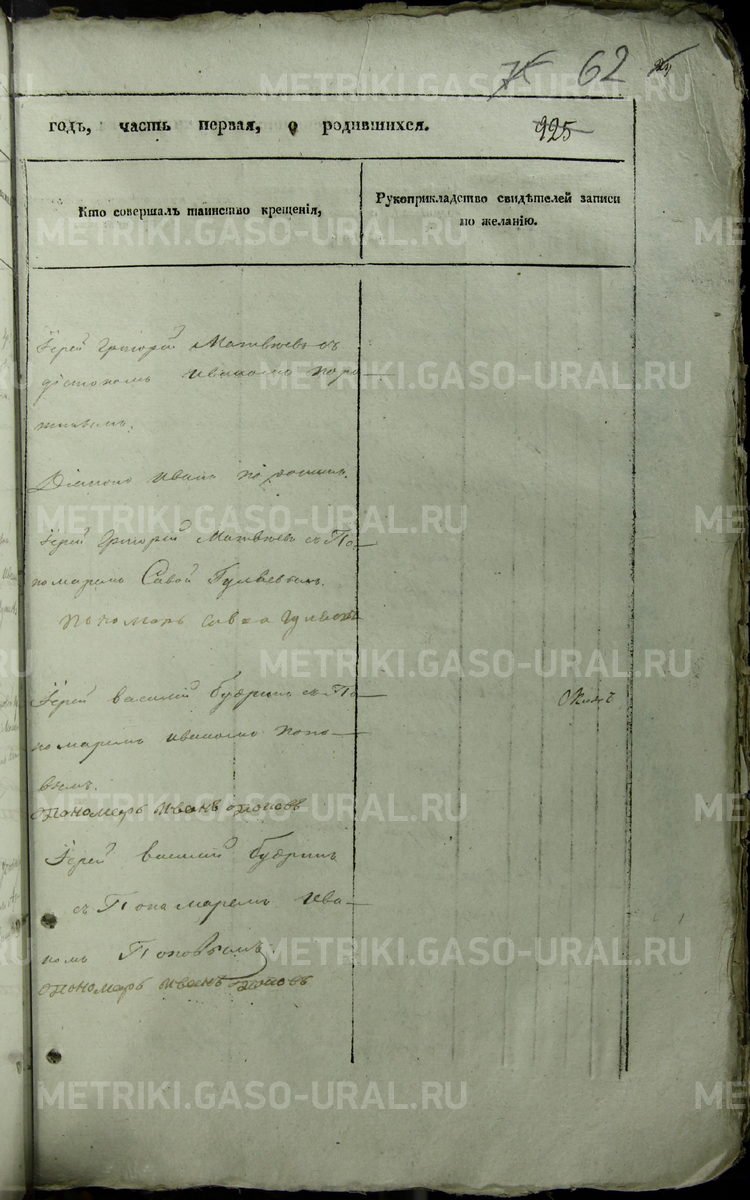 62
годъ, часть первая, о родившихся.
925
Кто совершалъ таинство крещенія,
Рукоприкладство свидѣтелей записи
по желанію.
Іерей Григорій Матвѣевъ съ
діакономъ Иваномъ
Діаконъ Иванъ
Іерей Григорій Матвѣевъ съ По-
номаремъ Савой Гуляевымъ.
Пономарь Савва Гуляевъ
Іерей Василий Будринъ съ По-
номаремъ Иваномъ Попо-
вымъ.
Пономарь Иванъ Поповъ
Іерей Василий Будринъ
съ Понамаремъ Ива-
номъ Поповымъ
Пономарь Иванъ Поповъ
METRIKI.GASO-URAL.RU